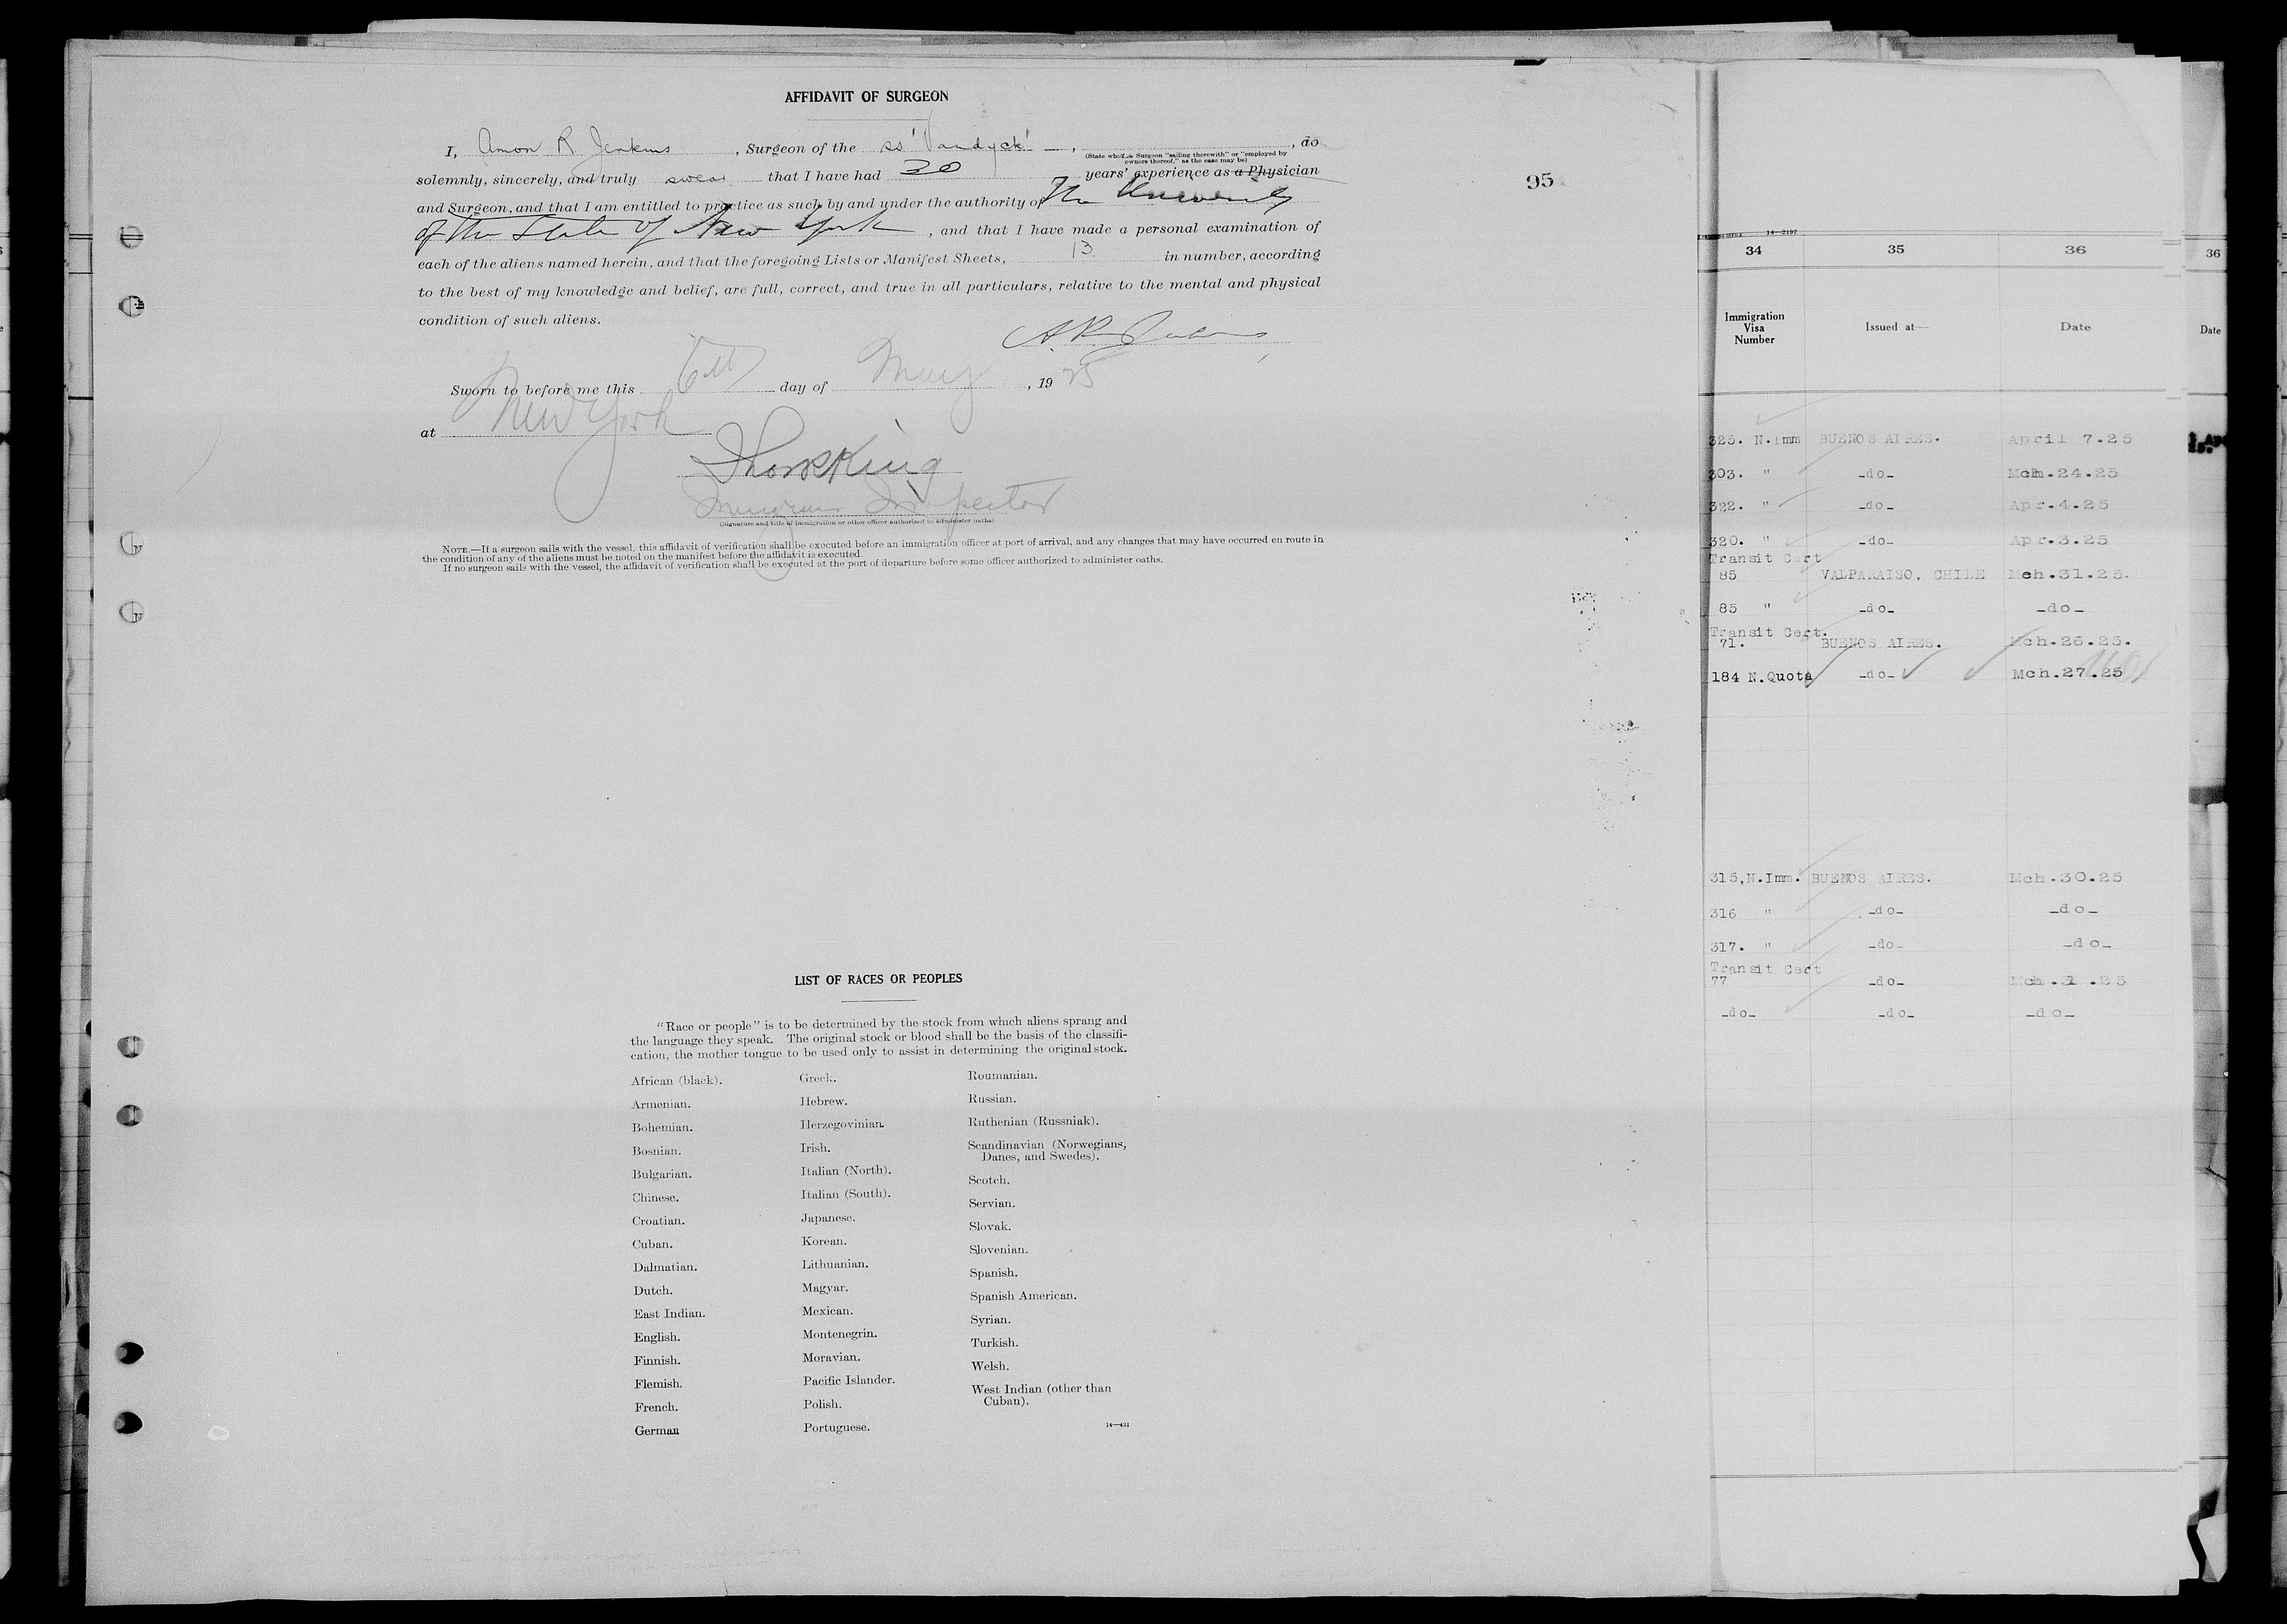 AFFIDAVIT OF SURGEON
I, Amon R. Jenkins, Surgeon of the ss 'Vandyck' —, , do
(State whether Surgeon "sailing therewith" or "employed by
owners thereof," as the case may be)
solemnly, sincerely, and truly swear that I have had 30 years' experience as a Physician
95
and Surgeon, and that I am entitled to practice as such by and under the authority of The University
of the State of New York, and that I have made a personal examination of
each of the aliens named herein, and that the foregoing Lists or Manifest Sheets, 13. in number, according
to the best of my knowledge and belief, are full, correct, and true in all particulars, relative to the mental and physical
condition of such aliens.
A.R. Jenkins
Sworn to before me this 6th day of May, 1925
at New York
King
Inspector
(Signature and title of immigration or other officer authorized to administer oaths)
NOTE.—If a surgeon sails with the vessel, this affidavit of verification shall be executed before an immigration officer at port of arrival, and any changes that may have occurred en route in
the condition of any of the aliens must be noted on the manifest before the affidavit is executed.
If no surgeon sails with the vessel, the affidavit of verification shall be executed at the port of departure before some officer authorized to administer oaths.
LIST OF RACES OR PEOPLES
"Race or people" is to be determined by the stock from which aliens sprang and
the language they speak. The original stock or blood shall be the basis of the classifi-
cation, the mother tongue to be used only to assist in determining the original stock.
African (black).
Armenian.
Bohemian.
Bosnian.
Bulgarian.
Chinese.
Croatian.
Cuban.
Dalmatian.
Dutch.
East Indian.
English.
Finnish.
Flemish.
French.
German
Greek.
Hebrew.
Herzegovinian.
Irish.
Italian (North).
Italian (South).
Japanese.
Korean.
Lithuanian.
Magyar.
Mexican.
Montenegrin.
Moravian.
Pacific Islander.
Polish.
Portuguese.
Roumanian.
Russian.
Ruthenian (Russniak).
Scandinavian (Norwegians,
Danes, and Swedes).
Scotch.
Servian.
Slovak.
Slovenian.
Spanish.
Spanish American.
Syrian.
Turkish.
Welsh.
West Indian (other than
Cuban).
14—431
14—2197
34 35 36
Immigration
Visa
Number
Issued at—
Date
325. N.Imm BUENOS AIRES. April 7.25
303. " -do- Mch.24.25
322. " -do- Apr.4.25
320. " -do- Apr.3.25
Transit Cert
85 VALPARAISO, CHILE Mch.31.25.
85 " -do- -do-
Transit Cert.
71. BUENOS AIRES. Mch.26.25.
184 N.Quota -do- Mch.27.25
315,N.Imm. BUENOS AIRES. Mch.30.25
316 " -do- -do-
317. " -do- -do-
Transit Cert
77 -do- Mch. .25
-do- -do- -do-
36
Date